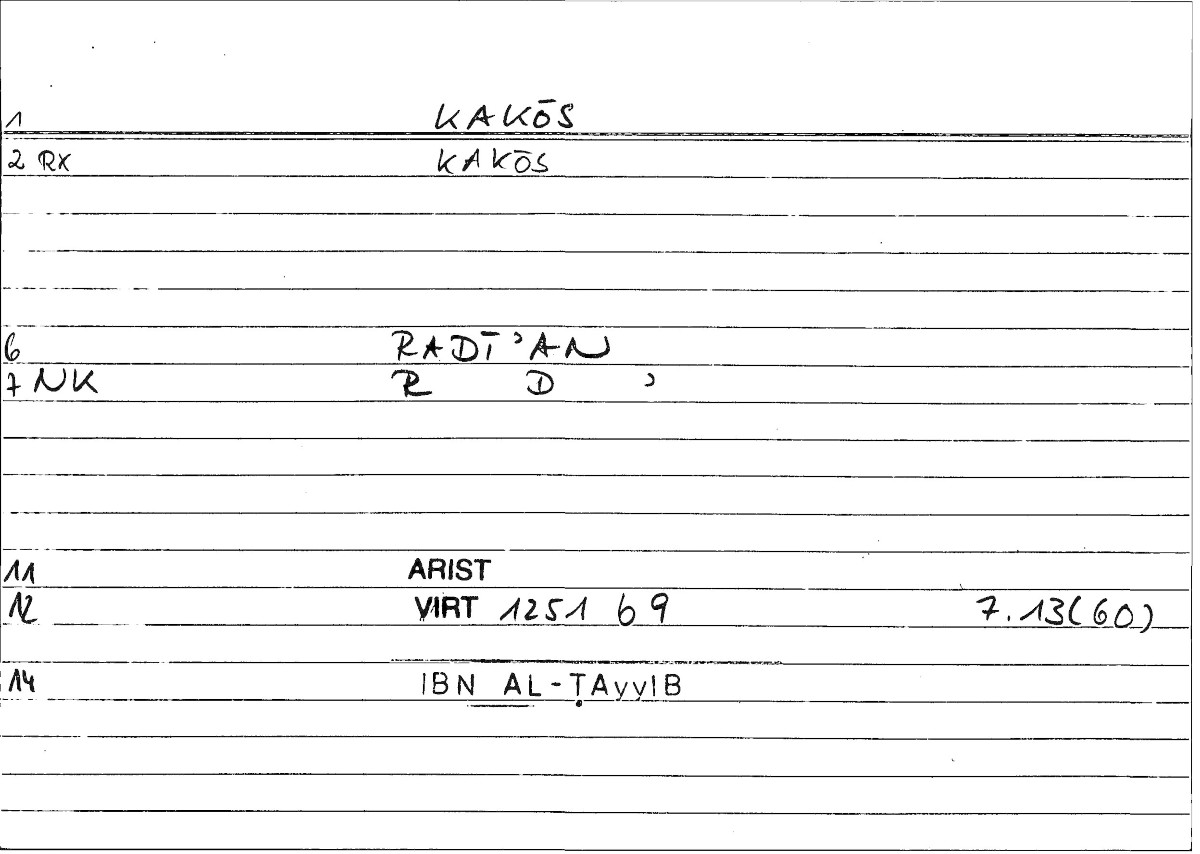 1 KAKŌS
2 RX KAKŌS
6 RADĪʾAN
7 NK R D ʾ
11 ARIST
12 VIRT 1251 b 9 7.13(60)
14 IBN AL-ṬAyyIB